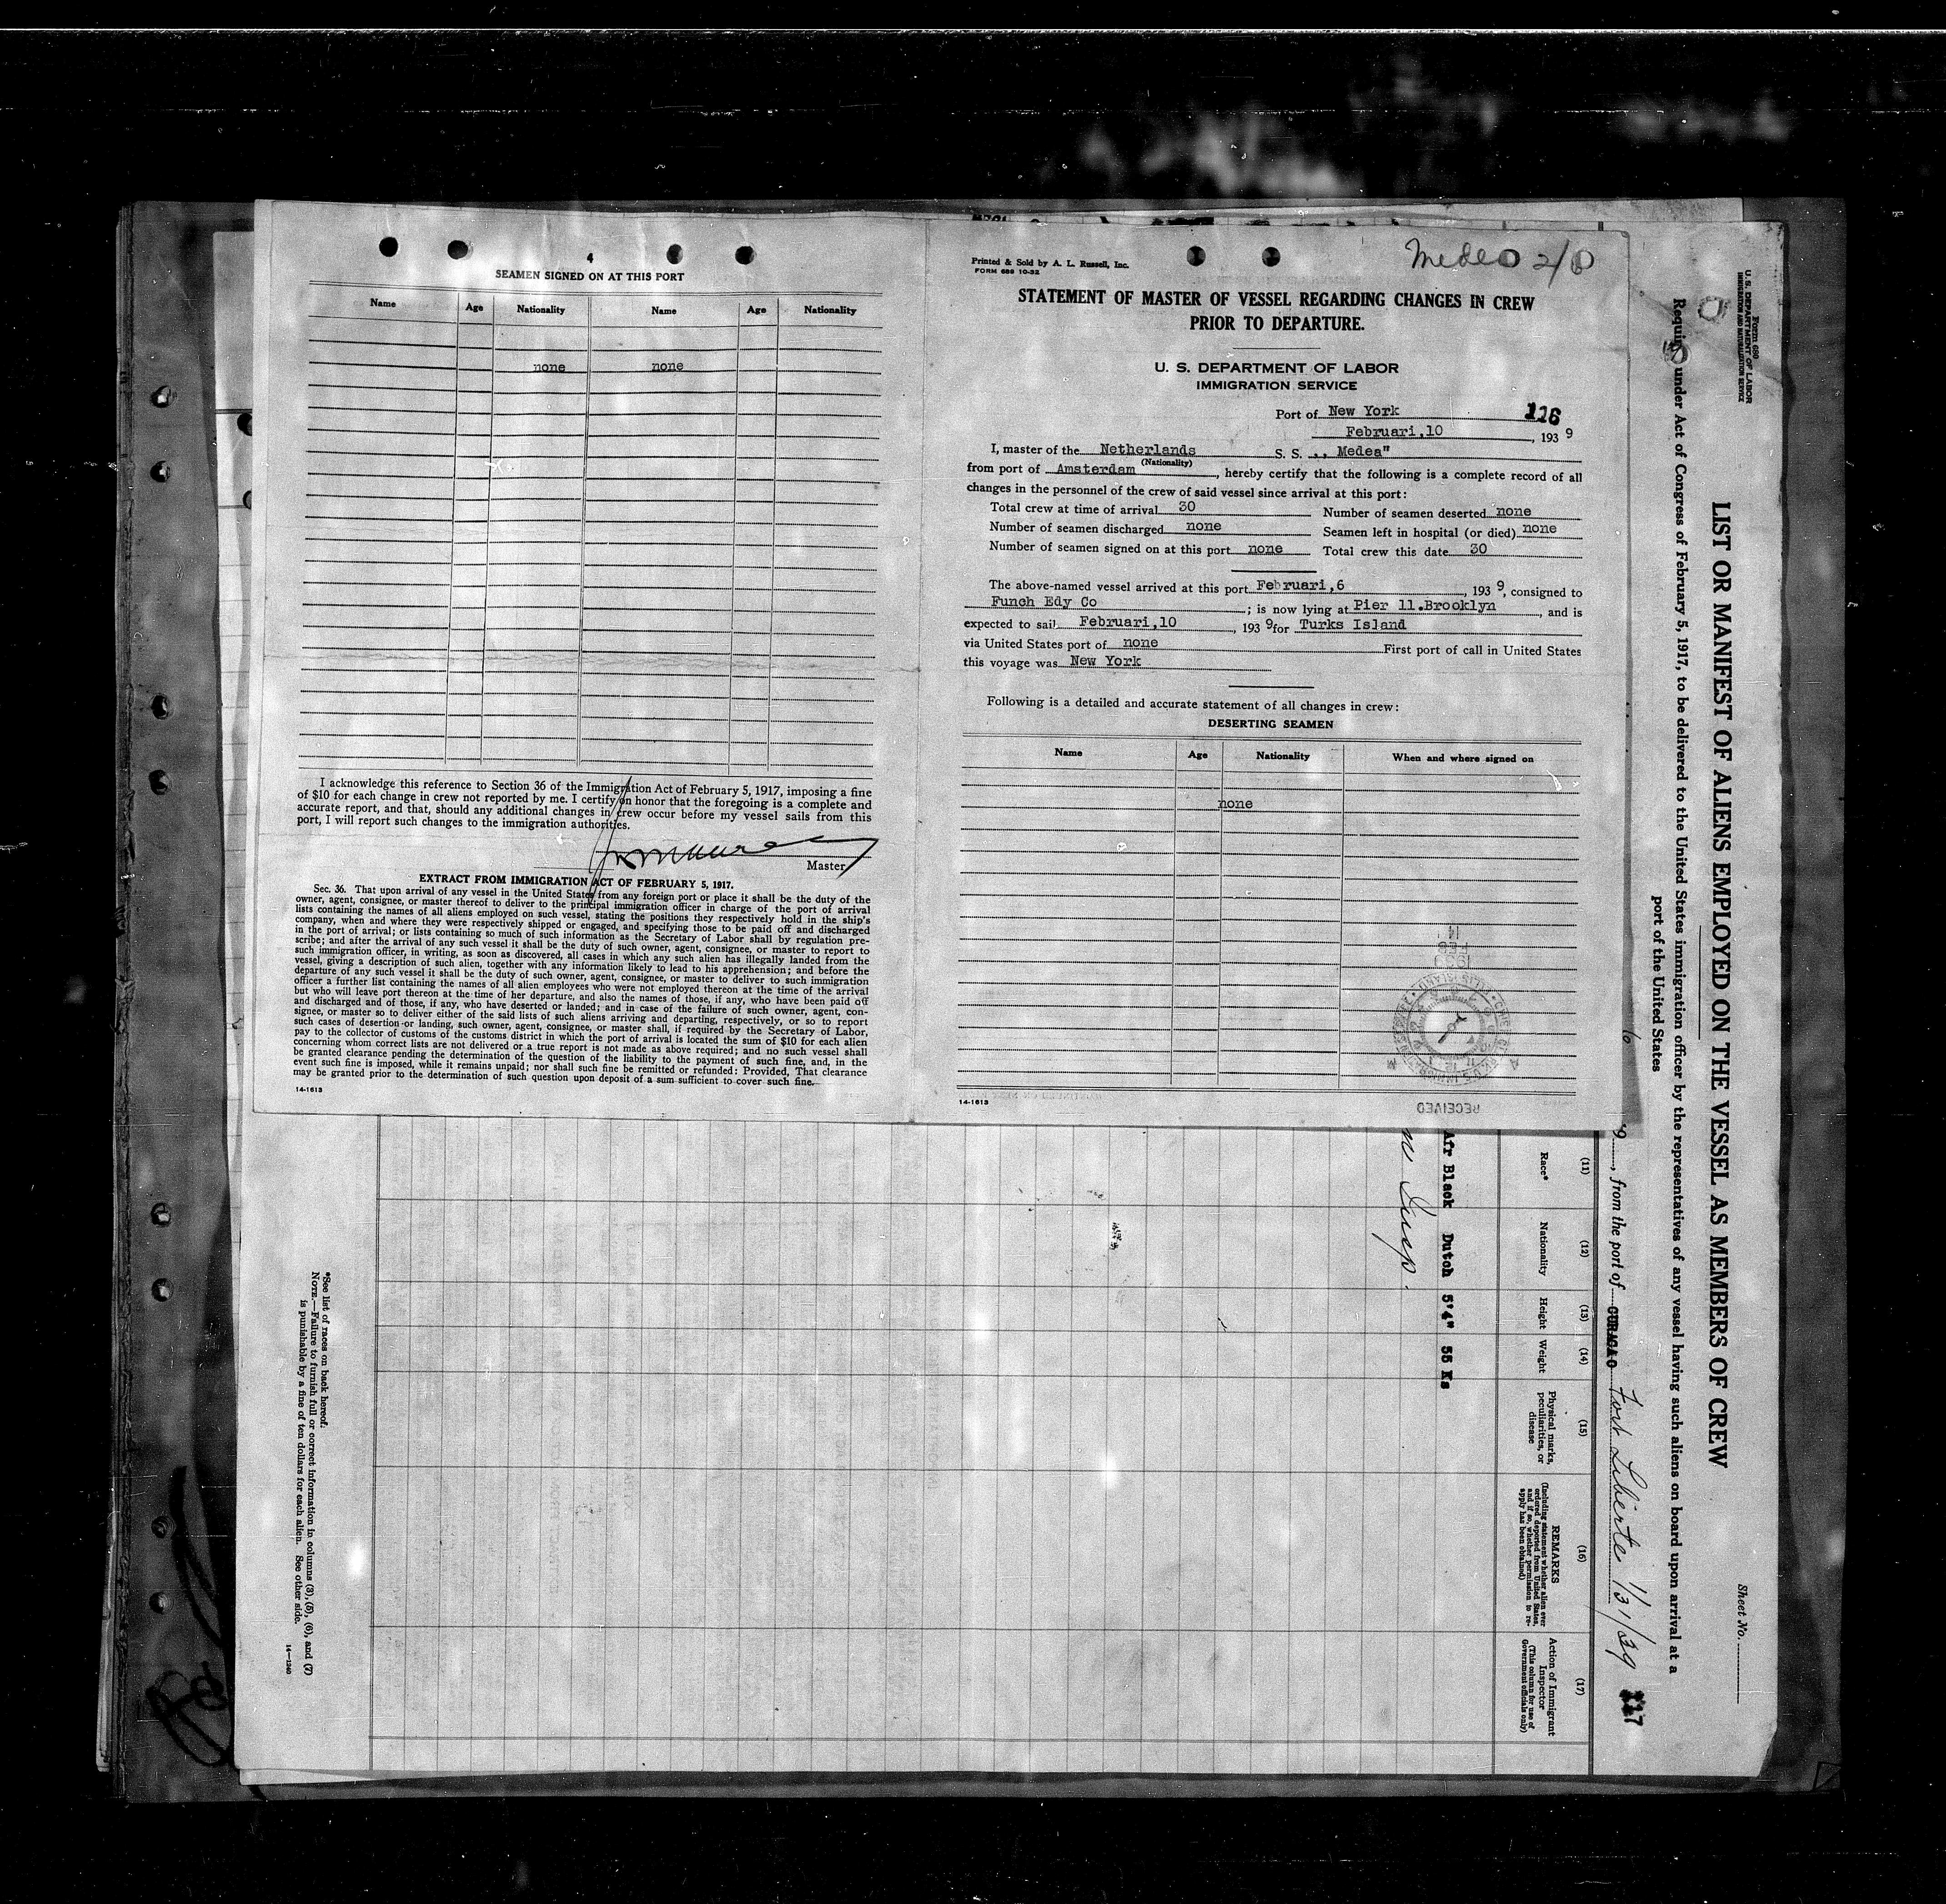 4
SEAMEN SIGNED ON AT THIS PORT
Name Age Nationality Name Age Nationality
none none
I acknowledge this reference to Section 36 of the Immigration Act of February 5, 1917, imposing a fine
of $10 for each change in crew not reported by me. I certify on honor that the foregoing is a complete and
accurate report, and that, should any additional changes in crew occur before my vessel sails from this
port, I will report such changes to the immigration authorities.
Master
EXTRACT FROM IMMIGRATION ACT OF FEBRUARY 5, 1917.
Sec. 36. That upon arrival of any vessel in the United States from any foreign port or place it shall be the duty of the
owner, agent, consignee, or master thereof to deliver to the principal immigration officer in charge of the port of arrival
lists containing the names of all aliens employed on such vessel, stating the positions they respectively hold in the ship's
company, when and where they were respectively shipped or engaged, and specifying those to be paid off and discharged
in the port of arrival; or lists containing so much of such information as the Secretary of Labor shall by regulation pre-
scribe; and after the arrival of any such vessel it shall be the duty of such owner, agent, consignee, or master to report to
such immigration officer, in writing, as soon as discovered, all cases in which any such alien has illegally landed from the
vessel, giving a description of such alien, together with any information likely to lead to his apprehension; and before the
departure of any such vessel it shall be the duty of such owner, agent, consignee, or master to deliver to such immigration
officer a further list containing the names of all alien employees who were not employed thereon at the time of the arrival
but who will leave port thereon at the time of her departure, and also the names of those, if any, who have been paid off
and discharged and of those, if any, who have deserted or landed; and in case of the failure of such owner, agent, con-
signee, or master so to deliver either of the said lists of such aliens arriving and departing, respectively, or so to report
such cases of desertion or landing, such owner, agent, consignee, or master shall, if required by the Secretary of Labor,
pay to the collector of customs of the customs district in which the port of arrival is located the sum of $10 for each alien
concerning whom correct lists are not delivered or a true report is not made as above required; and no such vessel shall
be granted clearance pending the determination of the question of the liability to the payment of such fine, and, in the
event such fine is imposed, while it remains unpaid; nor shall such fine be remitted or refunded: Provided, That clearance
may be granted prior to the determination of such question upon deposit of a sum sufficient to cover such fine.
14-1613
Printed & Sold by A. L. Russell, Inc.
FORM 689 10-32
STATEMENT OF MASTER OF VESSEL REGARDING CHANGES IN CREW
PRIOR TO DEPARTURE.
U. S. DEPARTMENT OF LABOR
IMMIGRATION SERVICE
Port of New York 116
Februari,10, 1939
I, master of the Netherlands S. S. ,, Medea"
(Nationality)
from port of Amsterdam, hereby certify that the following is a complete record of all
changes in the personnel of the crew of said vessel since arrival at this port:
Total crew at time of arrival 30 Number of seamen deserted none
Number of seamen discharged none Seamen left in hospital (or died) none
Number of seamen signed on at this port none Total crew this date 30
The above-named vessel arrived at this port Februari,6, 1939, consigned to
Funch Edy Co; is now lying at Pier 11.Brooklyn, and is
expected to sail Februari,10, 1939 for Turks Island
via United States port of none First port of call in United States
this voyage was New York
Following is a detailed and accurate statement of all changes in crew:
DESERTING SEAMEN
Name Age Nationality When and where signed on
none
14-1613
RECEIVED
Form 680
U. S. DEPARTMENT OF LABOR
IMMIGRATION AND NATURALIZATION SERVICE
Sheet No.
LIST OR MANIFEST OF ALIENS EMPLOYED ON THE VESSEL AS MEMBERS OF CREW
Required under Act of Congress of February 5, 1917, to be delivered to the United States immigration officer by the representatives of any vessel having such aliens on board upon arrival at a
port of the United States
9, from the port of CURACAO Fort Liberte 1/31/39 117
(11) (12) (13) (14) (15) (16) (17)
Race* Nationality Height Weight Physical marks, peculiarities, or disease
REMARKS
(Including statement whether alien ever ordered deported from United States, and if so, whether permission to reapply has been obtained)
Action of Immigrant Inspector
(This column for use of Government officials only)
Afr Black Dutch 5'4" 55 Ks
*See list of races on back hereof.
NOTE.—Failure to furnish full or correct information in columns (3), (5), (6), and (7)
is punishable by a fine of ten dollars for each alien. See other side.
14—1240